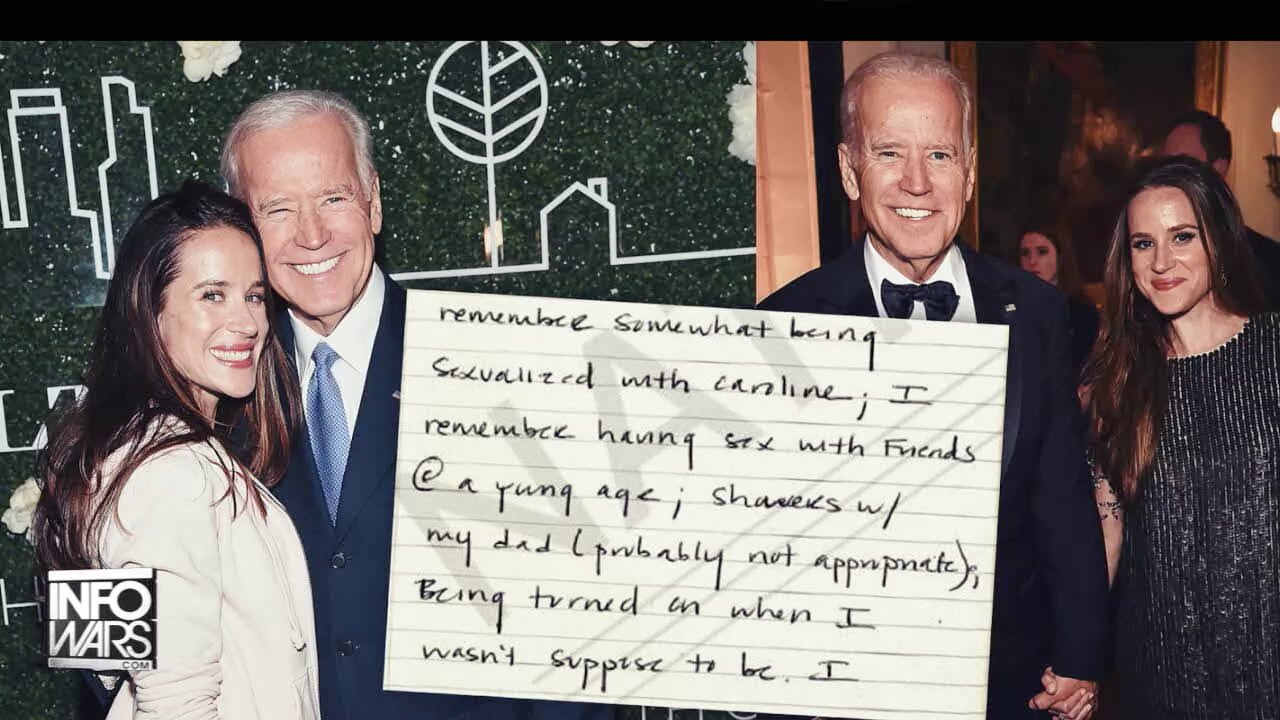 remember somewhat being
sexualized with caroline; I
remember having sex with Friends
@ a yung age; showers w/
my dad (probably not appropriate);
Being turned on when I
wasn't suppose to be. I
INFO
WARS
.COM